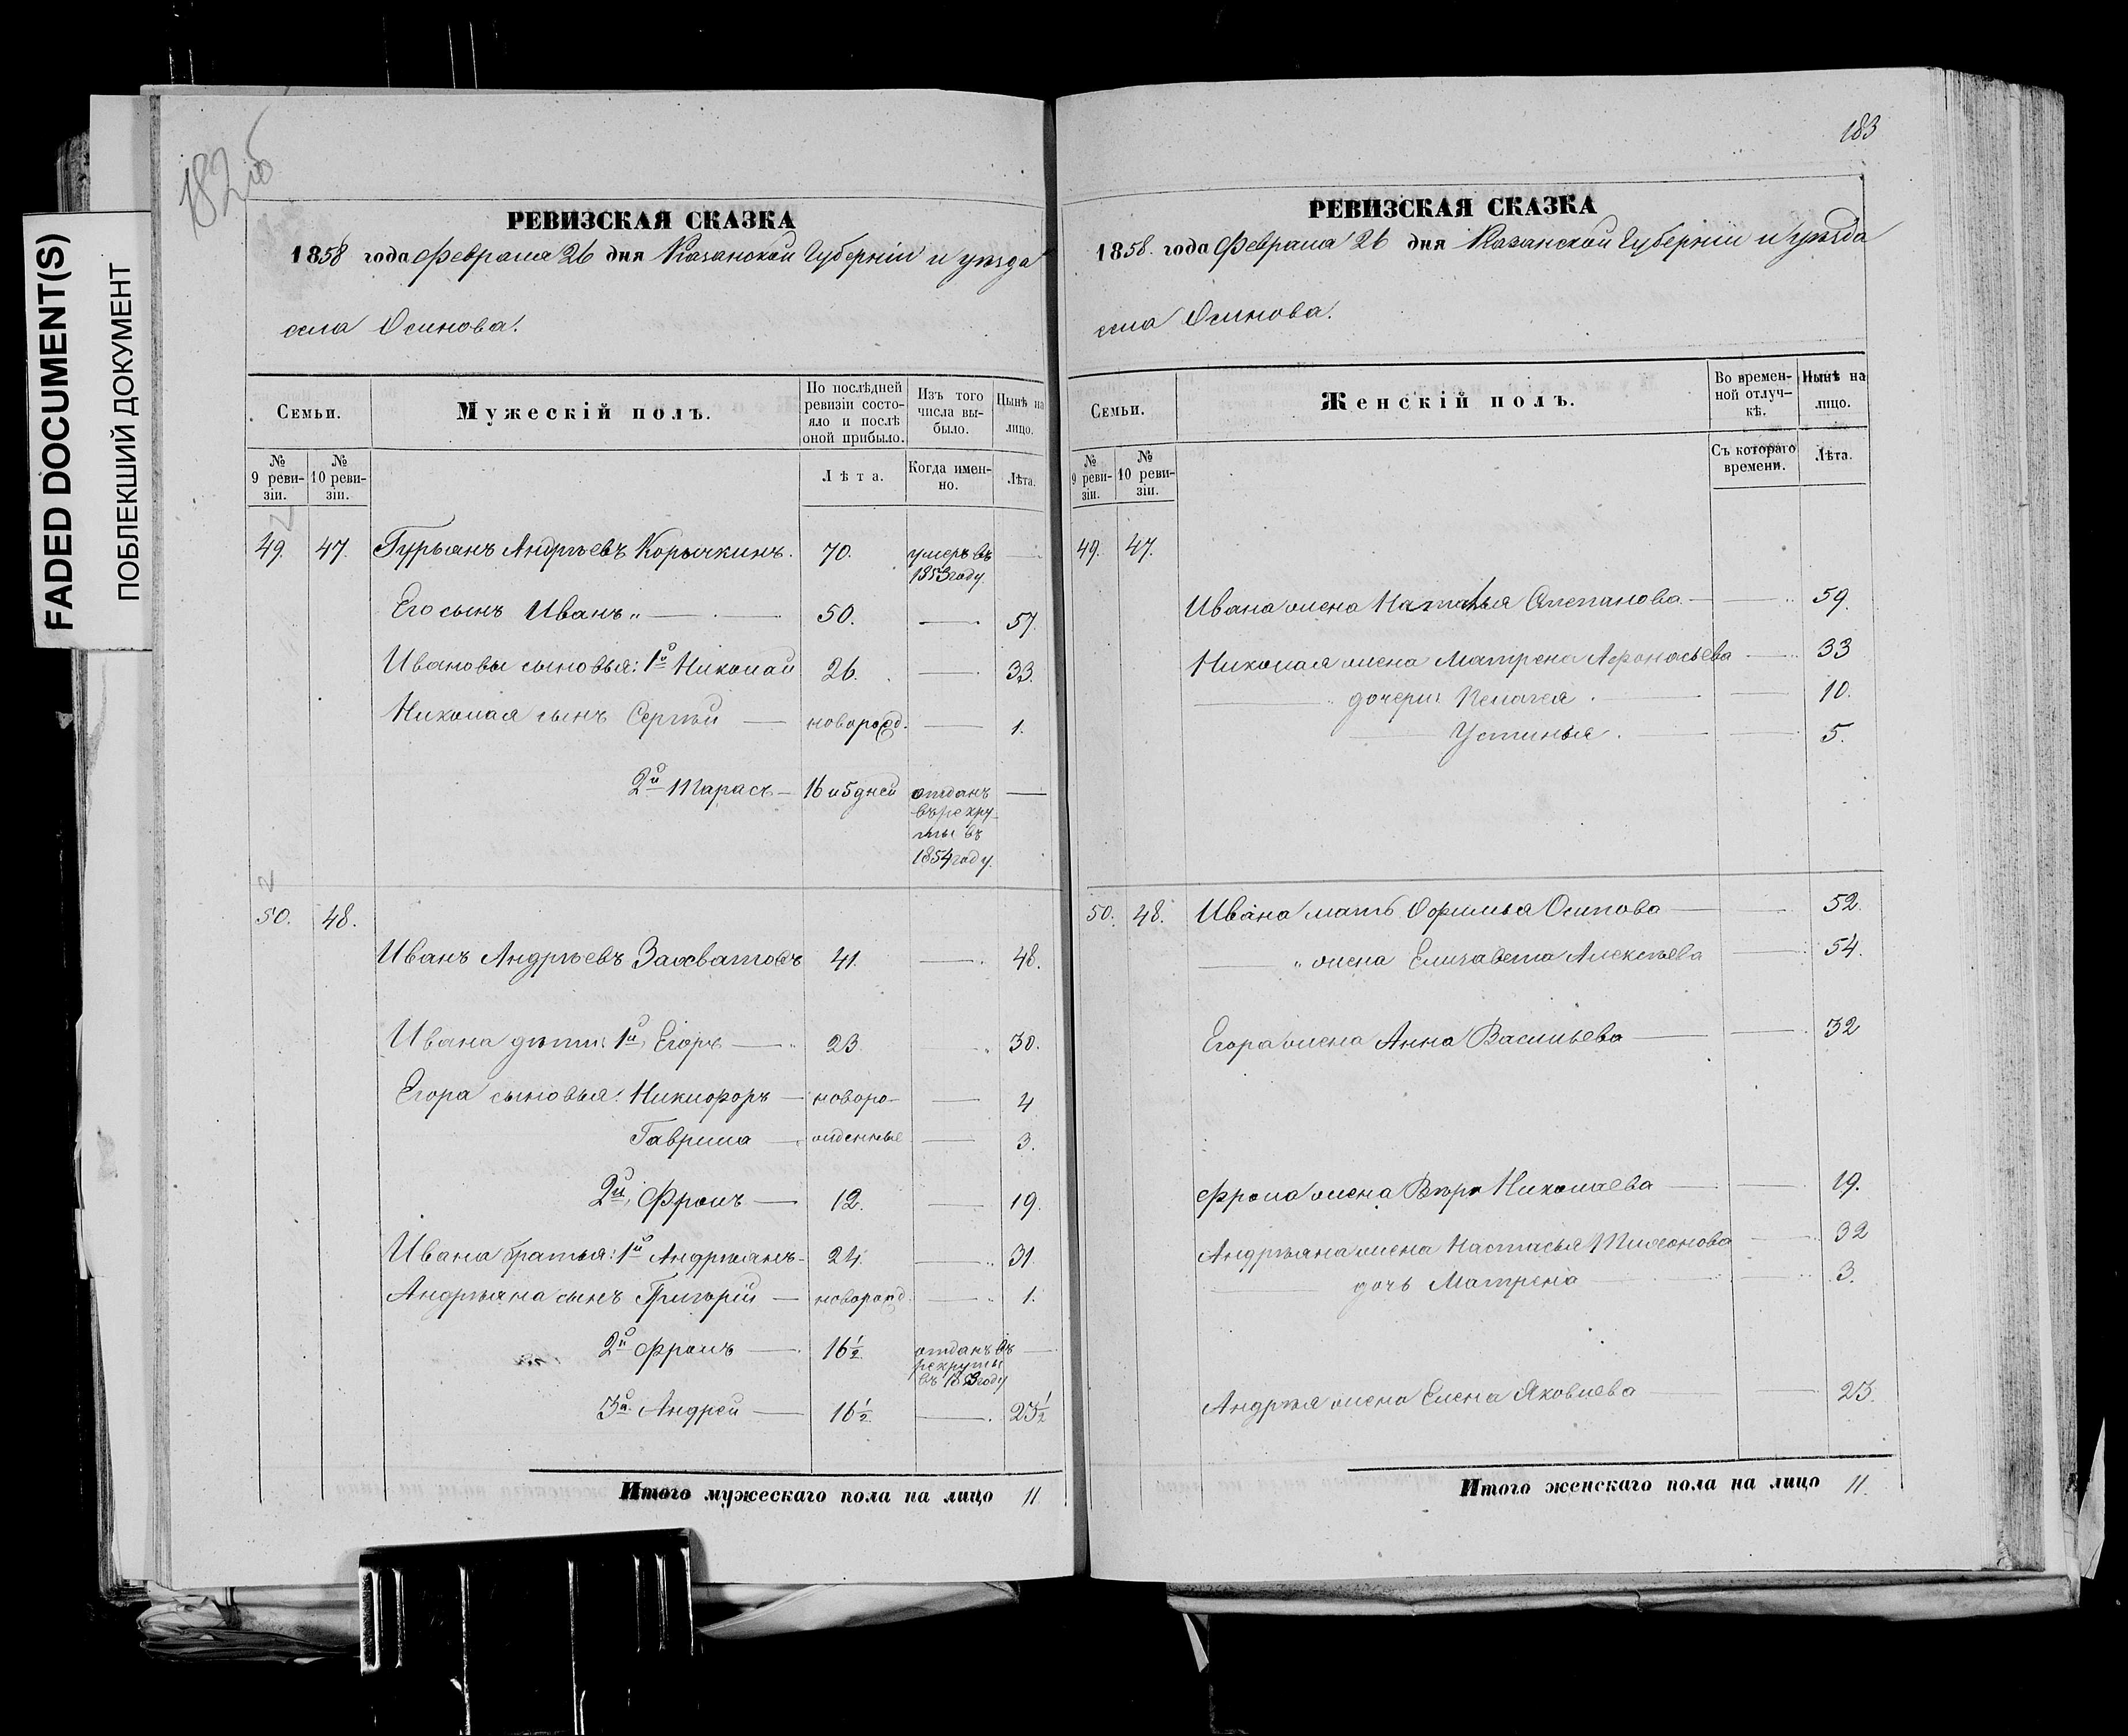 FADED DOCUMENT(S)
ПОБЛЕКШИЙ ДОКУМЕНТ
182об
РЕВИЗСКАЯ СКАЗКА
1858 года Февраля 26 дня Казанской Губерніи и уѣзда
села Осинова.
Семьи.
Мужескій полъ.
По послѣдней ревизіи состояло и послѣ оной прибыло.
Изъ того числа выбыло.
Нынѣ на лицо.
№ 9 ревизіи.
№ 10 ревизіи.
Лѣта.
Когда именно.
Лѣта.
49. 47. Гурьянъ Андреевъ Корычкинъ. 70. умеръ въ 1853 году. —
Его сынъ Иванъ „ — 50. — 57.
Ивановы сыновья: 1й Николай 26. — 33.
Николая сынъ Сергѣй — новорожд. — 1.
2й Тарасъ — 16 и 5 дней отданъ въ рекруты въ 1854 году. —
50. 48.
Иванъ Андреевъ Захватовъ 41. — 48.
Ивана дѣти: 1й, Егоръ — 23. — 30.
Егора сыновья: Никифоръ — новоро- — 4
Гаврила — жденные — 3.
2й, Фролъ — 12. — 19.
Ивана братья: 1й Андреянъ - 24. — 31.
Андреяна сынъ Григорій — новорожд. — 1.
2й Фролъ — 16½. отданъ въ рекруты въ 1853 году —
3й. Андрей — 16½. — 23½
Итого мужескаго пола на лицо 11.
183
РЕВИЗСКАЯ СКАЗКА
1858. года Февраля 26 дня Казанской Губерніи и уѣзда
села Осинова.
Семьи.
Женскій полъ.
Во временной отлучкѣ.
Нынѣ на лицо.
№ 9 ревизіи.
№ 10 ревизіи.
Съ котораго времени.
Лѣта.
49. 47.
Ивана жена Наталья Степанова — — 59.
Николая жена Матрена Афонасьева — 33
дочери: Пелагея. — — 10.
Устинья. — — 5.
50. 48. Ивана мать Офимья Осипова — — 52.
„ жена Елизавета Алексѣева — 54.
Егора жена Анна Васильева — — 32
Фрола жена Вѣра Николаева — — 19.
Андреяна жена Настасья Тихонова — 32
дочь Матрена — — 3.
Андрея жена Елена Яковлева — — 23.
Итого женскаго пола на лицо 11.